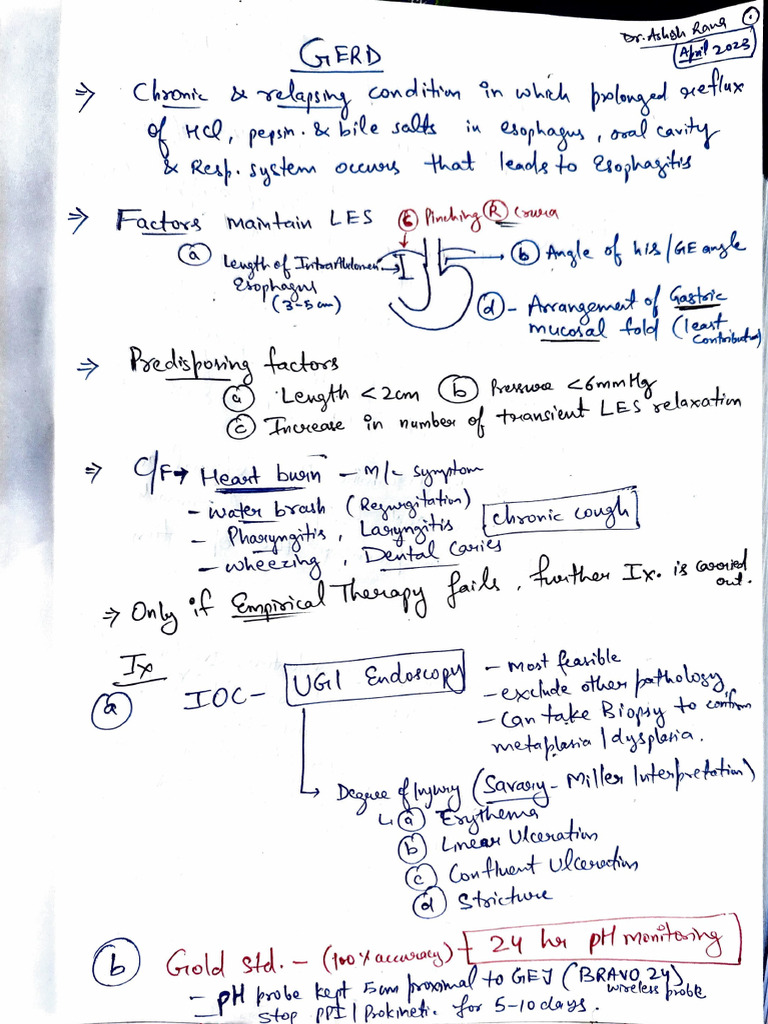 Dr. Ashish Rana
April 2023
GERD
⇒ Chronic & relapsing condition in which prolonged reflux
of HCl, pepsin & bile salts in esophagus, oral cavity
& Resp. system occurs that leads to Esophagitis
⇒ Factors maintain LES
(C) Pinching (R) Crura
(a) Length of IntraAbdomen
Esophagus
(3-5 cm)
(b) Angle of his / GE angle
(d) - Arrangement of Gastric
mucosal fold (least
contribution)
⇒ Predisposing factors
(a) Length <2cm (b) Pressure <6mmHg
(c) Increase in number of transient LES relaxation
⇒ C/F → Heart burn - M/C symptom
- water brash (Regurgitation)
- Pharyngitis, Laryngitis
- wheezing, Dental Caries
chronic cough
⇒ Only if Empirical Therapy fails, further Ix. is carried
out.
Ix
(a) IOC - UGI Endoscopy
- Most feasible
- exclude other pathology
- Can take Biopsy to confirm
metaplasia / dysplasia.
→ Degree of Injury (Savary - Miller Interpretation)
↳ (a) Erythema
(b) Linear Ulceration
(c) Confluent Ulceration
(d) Stricture
(b) Gold std. - (100% accuracy) - 24 hr pH monitoring
- pH probe kept 5cm proximal to GEJ (BRAVO 24)
wireless probe
- Stop PPI / Prokinetic for 5-10 days.